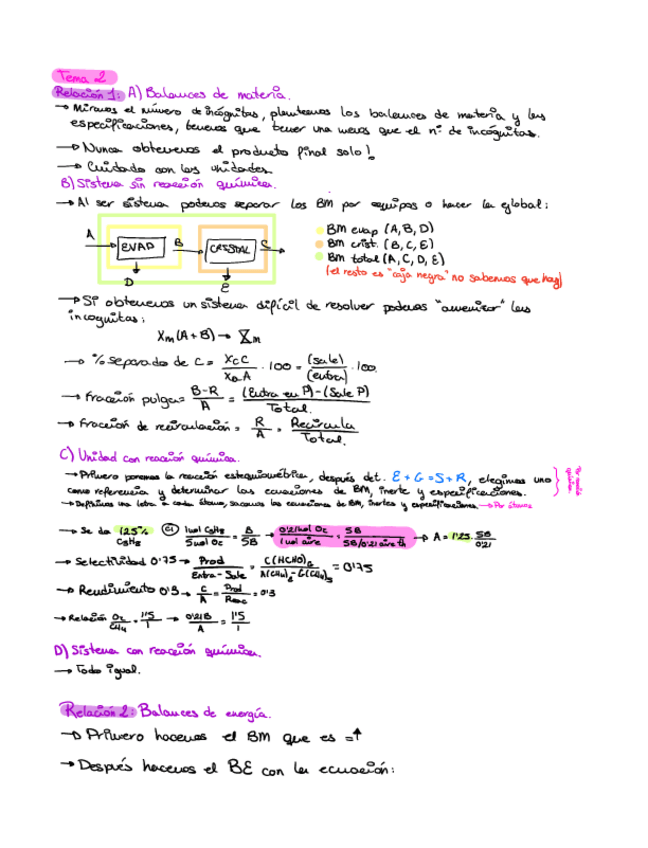 Tema 2
Relación 1: A) Balances de materia.
→ Miramos el número de incógnitas, planteamos los balances de materia y las
especificaciones, tenemos que tener una menos que el nº de incógnitas.
→ Nunca obtenemos el producto final solo!
→ Cuidado con las unidades.
B) Sistema sin reacción química.
→ Al ser sistema podemos separar los BM por equipos o hacer la global:
A EVAP B CRISTAL C
D E
BM evap (A, B, D)
BM crist. (B, C, E)
BM total (A, C, D, E)
(el resto es "caja negra" no sabemos que hay)
→ Si obtenemos un sistema difícil de resolver podemos "aumentar" las
incognitas:
Xm (A + B) → Xm
→ % separado de C = XcC / XaA · 100 = (sale) / (entra) · 100.
→ Fracción pulga = B-R / A = (Entra en P) - (Sale P) / Total.
→ Fracción de recirculación = R / A = Recircula / Total.
C) Unidad con reacción química.
→ Primero ponemos la reacción estequiométrica, después det. E + G = S + R, elegimos uno
como referencia y determinar las ecuaciones de BM, inerte y especificaciones.
→ Definimos una letra a cada átomo, sacamos las ecuaciones de BM, inertes y especificaciones → Por átomos
→ Se da 125% C3H8 1 mol C3H8 / 5 mol O2 = B / 5B → 0'21 mol O2 / 1 mol aire = 5B / 5B/0'21 aire th → A = 1'25 · 5B / 0'21
→ Selectividad 0'75 → Prod / Entra - Sale = C(HCHO)G / A(CH4)E - G(CH4)S = 0'75
→ Rendimiento 0'3 → C / A = Prod / Reac = 0'3
→ Relación O2 / CH4 = 1'5 / 1 → 0'21B / A = 1'5 / 1
D) Sistema con reacción química.
→ Todo igual.
Relación 2: Balances de energía.
→ Primero hacemos el BM que es =↑
→ Después hacemos el BE con la ecuación: